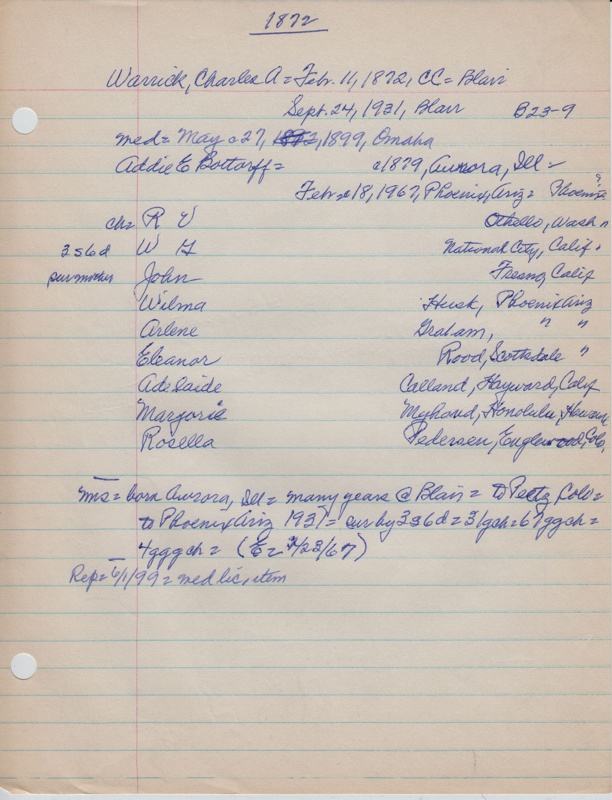 1872
Warrick, Charles A = Feb. 11, 1872, CC = Blair
Sept. 24, 1931, Blair B23-9
med = May c27, 1893, 1899, Omaha
Addie E Bottorff = c1879, Aurora, Ill =
Feb. c18, 1967, Phoenix, Ariz = Phoenix ?
ch = R V Othello, Wash
3s6d W G National City, Calif
sur mother John Fresno, Calif
Wilma Husk, Phoenix Ariz
Arlene Graham, " "
Eleanor Rood, Scottsdale "
Adelaide Calland, Hayward, Calif
Marjorie Honolulu, Hawaii
Rosella Pedersen, Englewood, Colo,
Mrs = born Aurora, Ill = many years @ Blair = to Peetz, Colo =
to Phoenix Ariz 1931 = sur by 3s6d = 31gch = 67ggch =
4gggch = (E = 2/23/67)
Rep = 6/1/99 = med lic, item